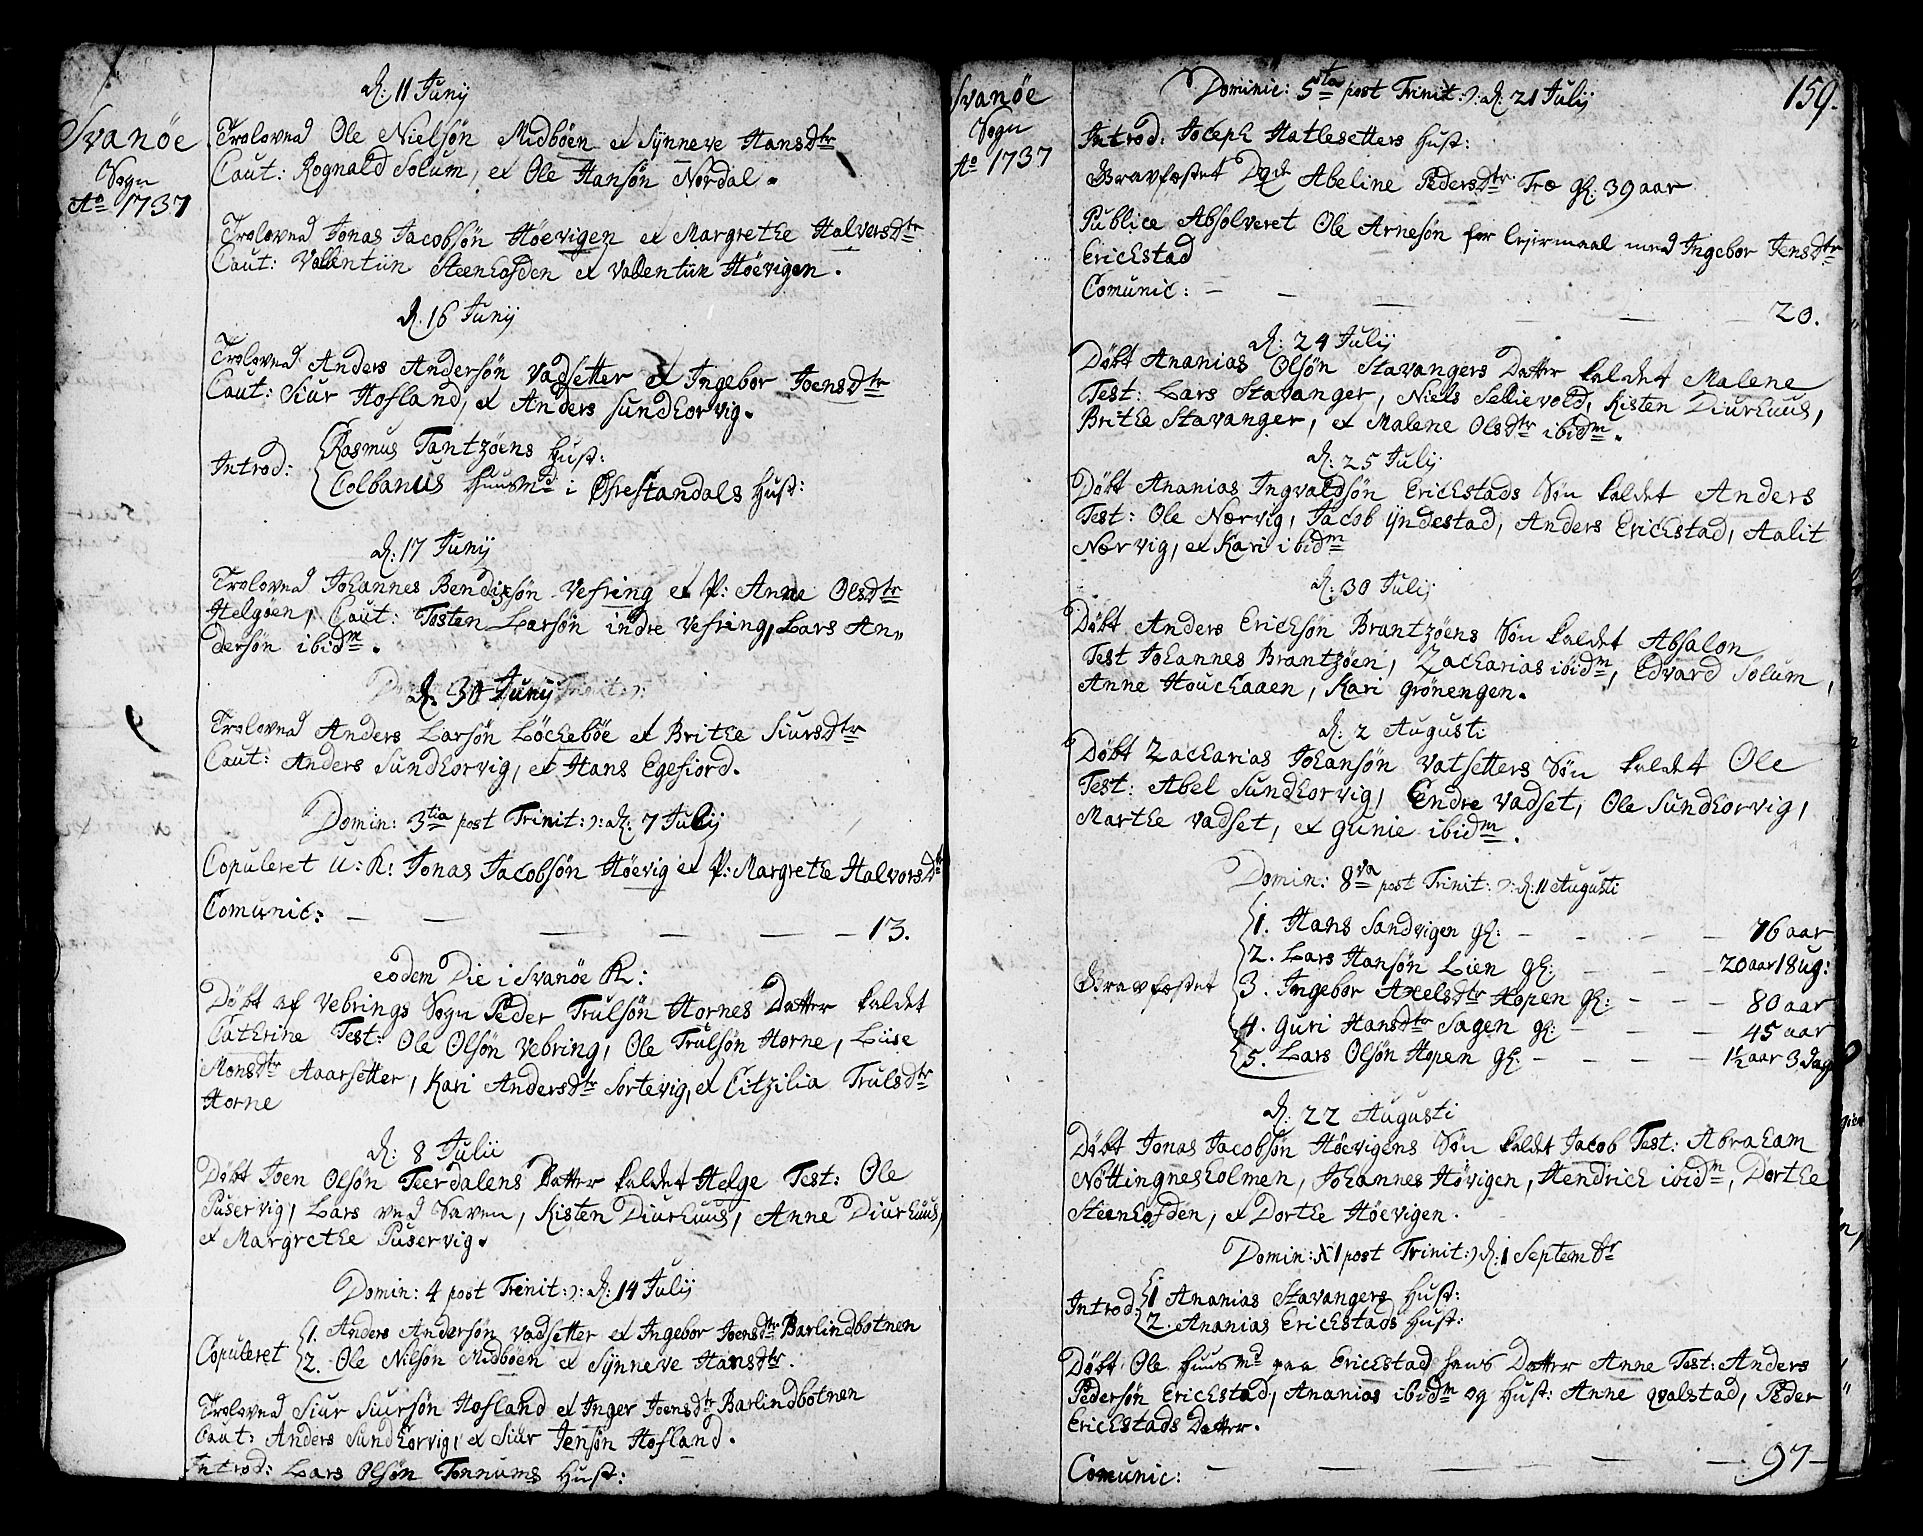 Svanöe
Sogn
Ao 1737
d: 11 Junij
Troloved Ole Nielsön Midböen et Synneve Hansdtr
Caut: Rognald Solum, et Ole Hansön Nordal.
Troloved Jonas Jacobsön Höevigen et Margrethe Halversdtr
Caut: Valentiin Steenhofden et Valentiin Höevigen.
d. 16 Junij
Troloved Anders Andersön Vadsetter et Ingebor Joensdtr
Caut: Siur Hofland, et Anders Sundhorvig.
Introd: Rasmus Tantzöens Hust:
Colbanus Huusmd i Öfrestandals Hust:
d. 17 Junij
Troloved Johannes Bendixsön Vefring et P: Anne Olsdtr
Helgöen, Caut: Tosten Larsön indre Vefring, Lars An„
dersön ibidm.
d. 30 Junij
Troloved Anders Larsön Löcheböe et Brithe Siursdtr
Caut: Anders Sundhorvig, et Hans Egefiord.
Domin: 3tia post Trinit: ɔ: d: 7 Julij
Copuleret U: K: Jonas Jacobsön Höevig et P: Margrethe Halvorsdtr
Comunic: — — — — — — 13.
eodem Die i Svanöe K:
Döbt af Vebrings Sogn Peder Trulsön Hornes Datter kaldet
Cathrine Test: Ole Olsön Vebring, Ole Trulsön Horne, Liise
Monsdtr Aaarsetter, Kari Andersdtr Sortevig, et Citzilia Trulsdtr
Horne
d: 8 Julii
Döbt Joen Olsön Teerdalens Datter kaldet Helge Test: Ole
Puservig, Lars ved Saven, Kisten Diurhuus, Anne Diurhuus,
et Margrethe Puservig.
Domin: 4 post Trinit: ɔ: d: 14 Julij
Copuleret 1. Anders Andersön Vadsetter et Ingebor Joensdtr Barlindbotnen
2. Ole Nilsön Midböen et Synneve Hansdtr.
Troloved Siur Siursön Hofland et Inger Joensdtr Barlindbotnen
Caut: Anders Sundhorvig, et Siur Jensön Hofland.
Introd: Lars Olsön Tonnums Hust:
Svanöe
Sogn
Ao 1737
159.
Dominic: 5ta post Trinit: ɔ: d: 21 Julij
Introd: Joceph Hatlesetters Hust:
Gravfæstet Abeline Pedersdtr Træ gl: 39 aar
Publice Absolveret Ole Arnesön for leyermaal med Ingebor Jensdtr
Erichstad
Comunic: — — — — — — 20.
d: 24 Julij
Döbt Ananias Olsön Stavangers Datter kaldet Malene
Test: Lars Stavanger, Niels Sellevold, Kisten Diurhuus,
Brithe Stavanger, et Malene Olsdtr ibidm.
d: 25 Julij
Döbt Ananias Ingvaldsön Erichstads Sön kaldet Anders
Test: Ole Nærvig, Jacob Yndestad, Anders Erichstad, Aalit
Nærvig, et Kari ibidm
d: 30 Julij
Döbt Anders Erichsön Brantzöens Sön kaldet Absalon
Test Johannes Brantzöen, Zacharias ibidm, Edvard Solum,
Anne Houchaaen, Kari Grönengen.
d: 2 Augusti
Döbt Zacharias Johansön Vatsetters Sön kaldet Ole
Test: Abel Sundhorvig, Endre Vadset, Ole Sundhorvig,
Marthe Vadset, et Gunie ibidm.
Domin: 8va post Trinit: ɔ: d: 11 Augusti
1. Hans Sandvigen gl: — — — — 76 aar
2. Lars Hansön Lien gl: — — — 20 aar 18 ug:
Gravfæstet 3. Ingebor Axelsdtr Hopen gl: — — — 80 aar
4. Guri Hansdtr Sagen gl: — — — 45 aar
5. Lars Olsön Hopen gl: — — — — 1½ aar 3 dag
d: 22 Augusti
Döbt Jonas Jacobsön Höevigens Sön kaldet Jacob Test: Abraham
Nöttingnesholmen, Johannes Hövigen, Hendrich ibidm, Dorthe
Steenhofden, et Dorthe Höevigen.
Domin: XI post Trinit: ɔ: d: 1 Septembr
Introd: 1 Ananias Stavangers Hust:
2. Ananias Erichstads Hust:
Döbt Ole Huusmd paa Erichstad hans Datter Anne Test: Anders
Pedersön Erichstad, Ananias ibidm og Hust: Anne Qvalstad, Peder
Erichstads Datter.
Comunic: — — — — — 97 —